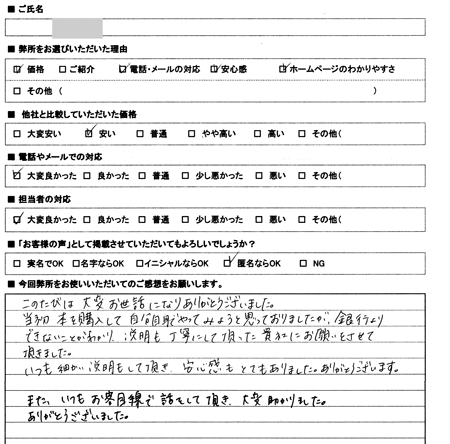 ■ ご氏名
■ 弊所をお選びいただいた理由
☑ 価格 □ ご紹介 ☑ 電話・メールの対応 ☑ 安心感 ☑ ホームページのわかりやすさ
□ その他（ ）
■ 他社と比較していただいた価格
□ 大変安い ☑ 安い □ 普通 □ やや高い □ 高い □ その他（
■ 電話やメールでの対応
☑ 大変良かった □ 良かった □ 普通 □ 少し悪かった □ 悪い □ その他（
■ 担当者の対応
☑ 大変良かった □ 良かった □ 普通 □ 少し悪かった □ 悪い □ その他（
■ 「お客様の声」として掲載させていただいてもよろしいでしょうか？
□ 実名でOK □名字ならOK □イニシャルならOK ☑ 匿名ならOK □ NG
■ 今回弊所をお使いいただいてのご感想をお願いします。
このたびは 大変お世話になりありがとうございました。
当初 本を購入して 自分自身でやってみようと思っておりましたが、銀行より
できないことがわかり、説明も丁寧にして頂いた貴社にお願いをさせて
頂きました。
いつも 細かい説明もして頂き、安心感もとてもありました。ありがとうございます。
また、いつもお客目線で話をして頂き、大変助かりました。
ありがとうございました。